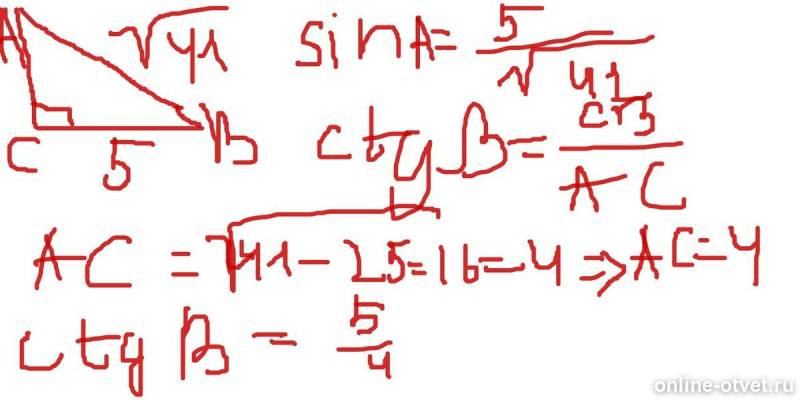 A √41 sin A = 5/√41
C 5 B ctg B = CB/AC
AC = √41 - 25 = 16 = 4 ⇒ AC = 4
ctg B = 5/4
online-otvet.ru